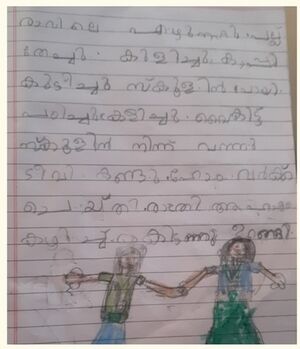 രാവിലെ എഴുന്നേറ്റു. പല്ല്
തേച്ചു. കുളിച്ചു. കാപ്പി
കുടിച്ചു സ്കൂളിൽ പോയി.
പഠിച്ചു. കളിച്ചു. വൈകിട്ട്
സ്കൂളിൽ നിന്ന് വന്നു
ടി വി കണ്ടു. ഹോം വർക്ക്
ചെയ്തു. രാത്രി ആഹാരം
കഴിച്ച് കിടന്നു ഉറങ്ങി